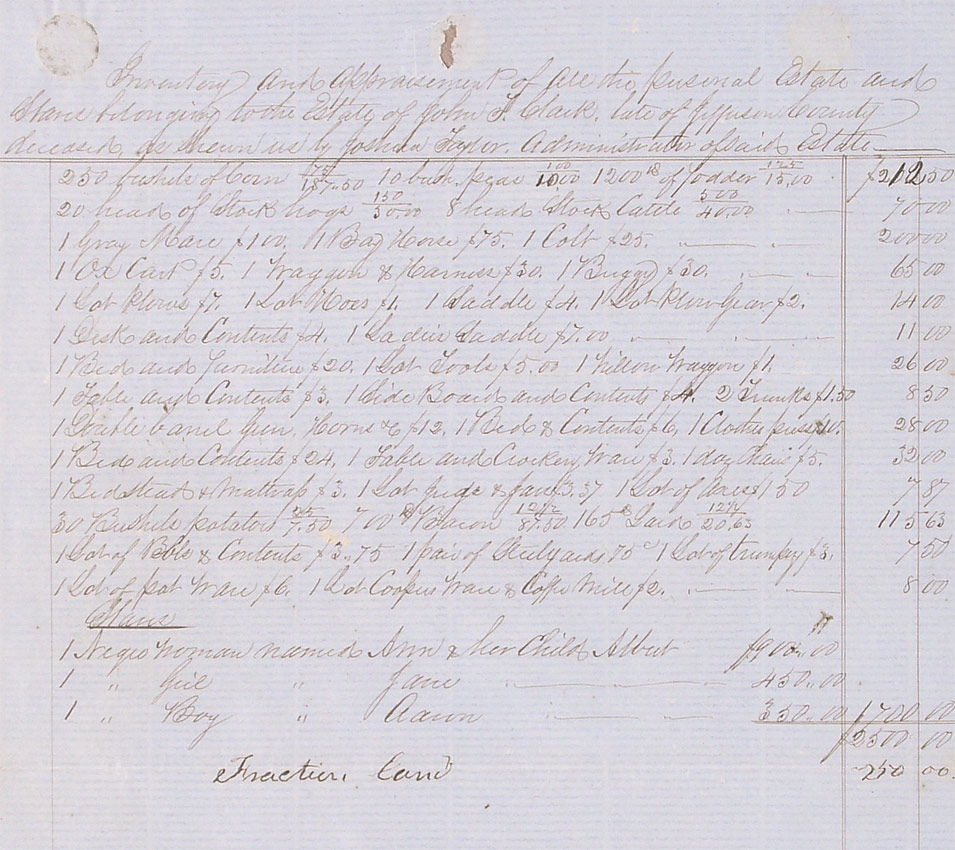 Inventory and Appraisement of all the personal Estate and
Slaves belonging to the Estate of John F. Clark, late of Jefferson County
deceased, as shewn us by Joshua Taylor, Administrator of said Estate
250 bushels of Corn 75/187.50 10 bush. peas 100/10.00 1200 lb of fodder 125/15.00 $212 50
20 head of Stock hogs 150/30.00 8 head Stock Cattle 500/40.00 70 00
1 Gray Mare $100. 1 Bay Horse $75. 1 Colt $25. 200 00
1 Ox Cart $5. 1 Waggon & Harness $30. 1 Buggy $30. 65 00
1 Lot Plows $7. 1 Lot Hoes $1. 1 Saddle $4. 1 Lot Plow Gear $2. 14 00
1 Desk and Contents $4. 1 Ladies Saddle $7.00 11 00
1 Bed and Furniture $20. 1 Lot Tools $5.00 1 Waggon $1. 26 00
1 Table and Contents $3. 1 Side Board and Contents $4. 2 Trunks $1.50 8 50
1 Double barrel Gun, Horns &c $12. 1 Bed & Contents $6. 1 Clothes press $10. 28 00
1 Bed and Contents $24. 1 Table and Crockery Ware $3. 1 day Chair $5. 32 00
1 Bedstead & Mattrass $3. 1 Lot jugs & jars $3.37 1 Lot of Axes $1 50 7 87
30 Bushels potatoes 25/7.50 700 lb Bacon 12 1/2/87.50 165 lb Lard 12 1/2/20.63 115 63
1 Lot of Bbls & Contents $3.,75 1 pair of Steelyards, 75 c 1 Lot of trumpery $3. 7 50
1 Lot of pot Ware $6. 1 Lot Coopers Ware & Coffee Mill $2. 8 00
Slaves
1 Negro Woman named Ann & Her Child Albert $900.,00
1 " Girl " Jane 450.,00
1 " Boy " Aaron 350.,00 1700 00
$2500 00
Fraction Land 250 00